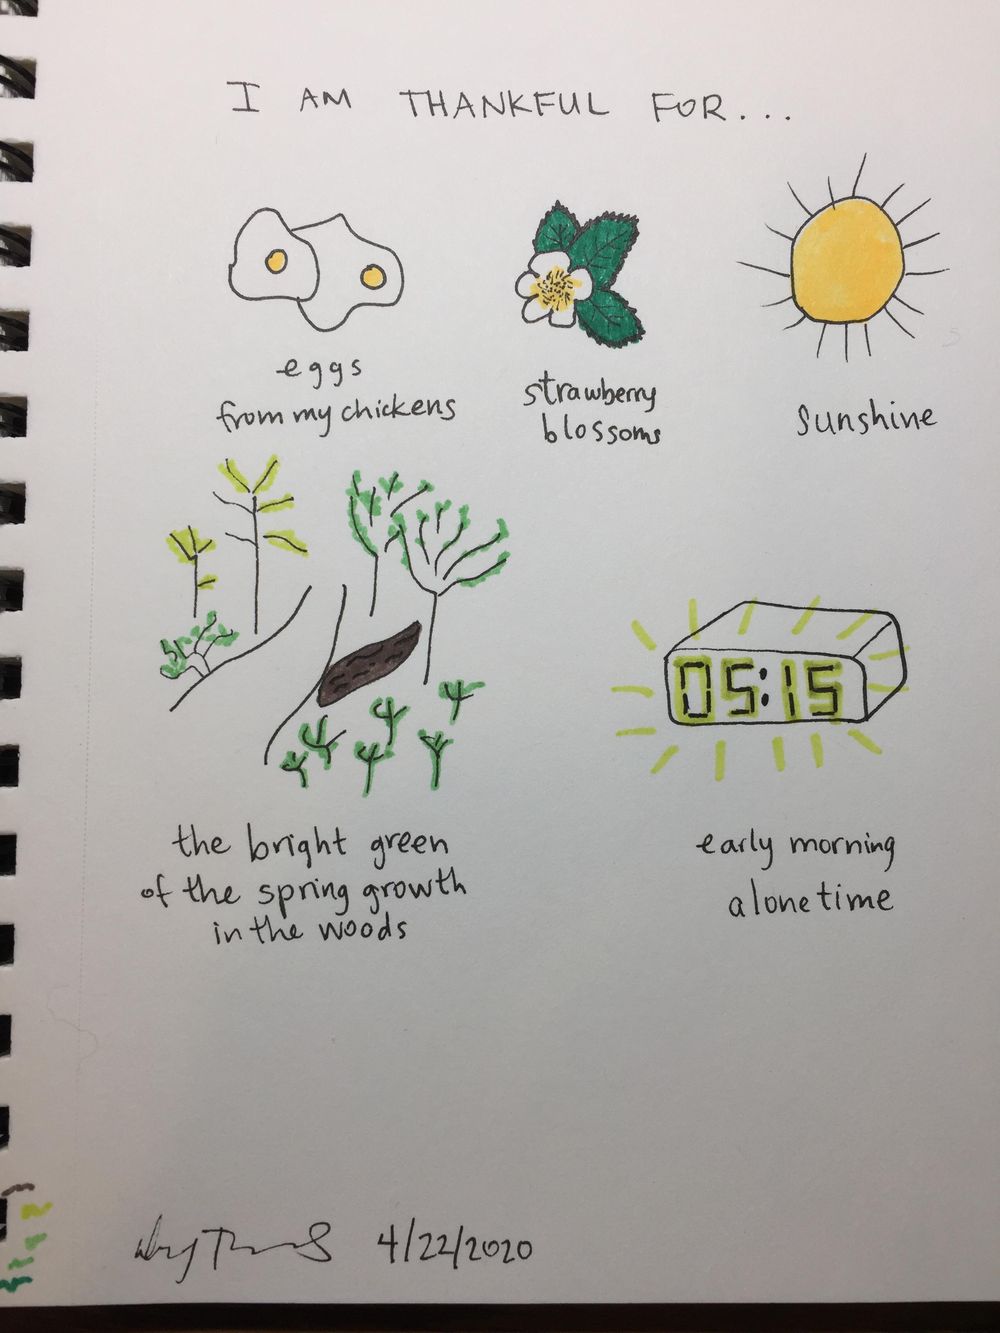 I AM THANKFUL FOR...
eggs
from my chickens
strawberry
blossoms
sunshine
05:15
the bright green
of the spring growth
in the woods
early morning
alone time
4/22/2020